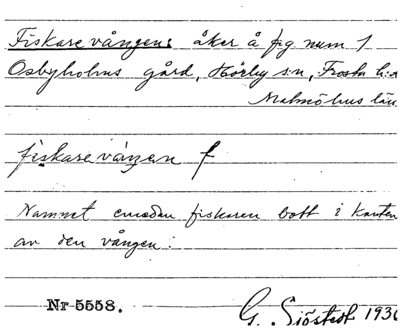 Fiskarevången: åker å fig num 1
Osbyholms gård, Hörby s:n, Frosta h:d
Malmöhus län
fiskarevången f
Namnet emedan fiskaren bott i kanten
av den vången.
Nr 5558.
G. Sjöstedt 1930